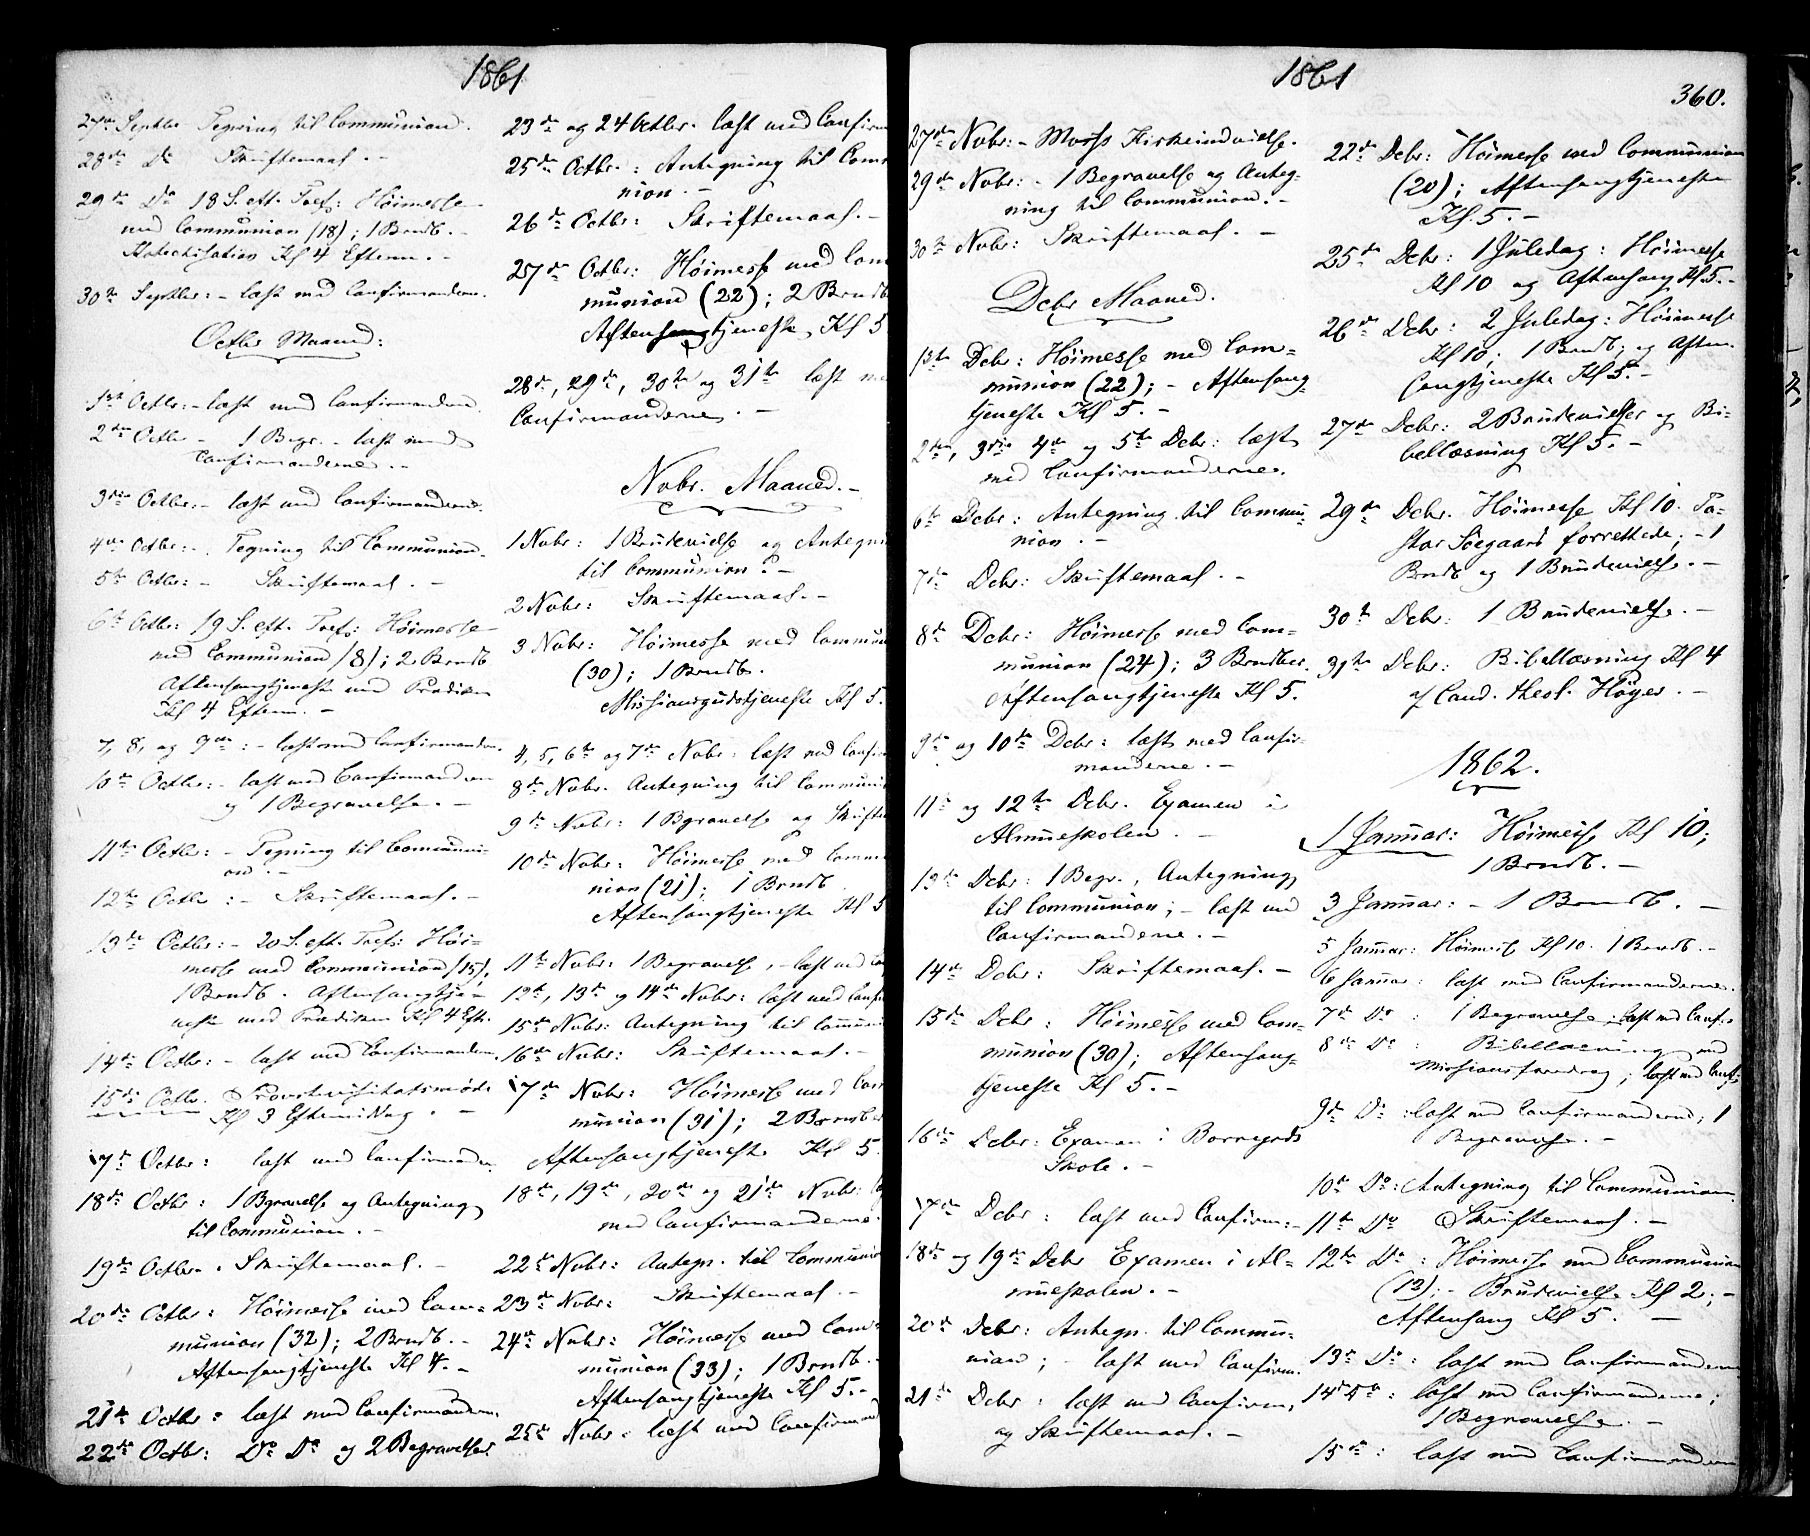 1861
27de Septbr Tegning til Communion.
28de Do Skriftemaal. -
29de Do 18 S. eft. Tref: Høimesse
med Communion (18); 1 Brndb. -
Katechisation Kl 4 Efterm. -
30te Septbr: - læst med Confirmanderne.
Octbr Maaned:
1ste Octbr: - læst med Confirmanderne.
2den Octbr - 1 Begr. - læst med
Confirmanderne. -
3die Octbr: - læst med Confirmanderne.
4de Octbr: - Tegning til Communion.
5te Octbr: - Skriftemaal. -
6te Octbr: 19 S. eft. Tref: Høimesse
med Communion (8); 2 Brndb.
Aftensangtjeneste med Prædiken
Kl 4 Efterm. -
7, 8, og 9de: - læst med Confirmanderne.
10de Octbr: - læst med Confirmanderne
og 1 Begravelse. -
11te Octbr: - Tegning til Communi-
on. -
12te Octbr: - Skriftemaal. -
13de Octbr: - 20 S. eft. Tref: Høi-
messe med Communion (15),
1 Brndb. Aftensangtje-
neste med Prædiken Kl 4 Eft.
14de Octbr: - læst med Confirmanderne.
15de Octbr. Provstevisitatsmøde
Kl 3 Eftermidag. -
17de Octbr: læst med Confirmander
18de Octbr: 1 Bgravelse og Antegning
til Communion. -
19de Octbr. Skriftemaal. -
20de Octbr: Høimesse med Com-
munion (32); 2 Brndb. -
Aftensangtjeneste Kl 4. -
21de Octbr: læst med Confirmandern.
22de Octbr: Do Do og 2 Begravelser.
23de og 24 Octbr. læst med Confirm
25de Octbr.: Antegning til Com
nion. -
26de Octbr: Skriftemaal. -
27de Octbr: Høimesse med Com
munion (22); 2 Brndb
Aftensangtjeneste Kl 5
28de, 29de, 30te og 31te læst me
Confirmanderne. -
Nobr. Maaned. -
1 Nobr: 1 Brudevielse og Antegni
til Communion. -
2 Nobr: Skriftemaal. -
3 Nobr: Høimesse med Commun
(30); 1 Brndb.
Missionsgudstjeneste Kl 5.
4, 5, 6te og 7de Nobr: læst med Confir
8de Nobr. Antegning til Communi
9de Nobr: 1 Bgravelse og Skrifte
10de Nobr: Høimesse med Commu
nion (21); 1 Brndb.
Aftensangtjeneste Kl 5
11te Nobr: 1 Begravelse, - læst med Con
12te, 13de og 14de Nobr: læst med Confi
15de Nobr: Antegning til Communi
16de Nobr: Skriftemaal. -
17de Nobr: Høimesse med Com
munion (31); 2 Barnsber
Aftensangtjeneste Kl 5.
18de, 19de, 20de og 21de Nobr: læ
med Confirmanderne.
22de Nobr: Antegn. til Communio
23de Nobr: Skriftemaal. -
24de Nobr: Høimesse med Com-
munion (33); 1 Brndb. -
Aftensangtjeneste Kl 5. -
25de Nobr: læst med Confirmand
1861
360.
27de Nobr: - Moss Kirkeindvielse.
29de Nobr: - 1 Begravelse og Anteg-
ning til Communion. -
30te Nobr: Skriftemaal. -
Debr Maaned.
1ste Debr: Høimesse med Com-
munion (22); - Aftensang-
tjeneste Kl 5. -
2den, 3die 4de og 5te Debr: læst
med Confirmanderne.
6te Debr: Antegning til Commu-
nion. -
7de Debr: Skriftemaal. -
8de Debr: Høimesse med Com-
munion (24); 3 Brndber.
Aftensangtjeneste Kl 5.
9de og 10de Debr: læst med Confir-
manderne. -
11te og 12te Debr. Examen i
Almueskolen. -
13de Debr: 1 Begr., Antegning
til Communion; - læst med
Confirmanderne. -
14de Debr: Skriftemaal. -
15de Debr: Høimesse med Com-
munion (30); Aftensang-
tjeneste Kl 5. -
16de Debr: Examen i Borregaards
Skole. -
17de Debr: læst med Confirm: -
18de og 19de Debr Examen i Al-
mueskolen. -
20de Debr: Antegn. til Commu-
nion; - læst med Confirm.
21de Debr: læst med Confirm,
og Skriftemaal. -
22de Debr: Høimesse med Communion
(20); Aftensangtjeneste
Kl. 5. -
25de Debr: 1 Juledag: Høimesse
Kl 10 og Aftensang Kl 5. -
26de Debr: 2 Juledag: Høimesse
Kl 10. 1 Brndb; og Aften-
sangtjeneste Kl 5. -
27de Debr: 2 Brudevielser og Bi-
bellæsning Kl 5. -
29de Debr. Høimesse Kl 10. Pa-
stor Søegaard forrettede; - 1
Brndb og 1 Brudevielse. -
30te Debr: 1 Brudevielse. -
31te Debr: Bibellæsning Kl 4
af Cand. theol. Høyer. -
1862.
1 Januar: Høimesse Kl 10;
1 Brndb. -
3 Januar: - 1 Brndb. -
5 Januar: Høimesse Kl 10. 1 Brndb. -
6 Januar: læst med Confirmanderne.
7de Do: 1 Begravelse; læst med Confir
8de Do: Bibellæsning med
Missionsforedrag; læst med Confi
9de Do: læst med Confirmanderne; 1
Begravelse. -
10de Do: Antegning til Communion.
11te Do Skriftemaal. -
12te Do: Høimesse med Communion
(13); - Brudevielse Kl 2; -
Aftensang Kl 5. -
13de Do: læst med Confirmanderne
14de Do: læst med Confirmanderne;
1 Begravelse. -
15de: læst med Confirmanderne